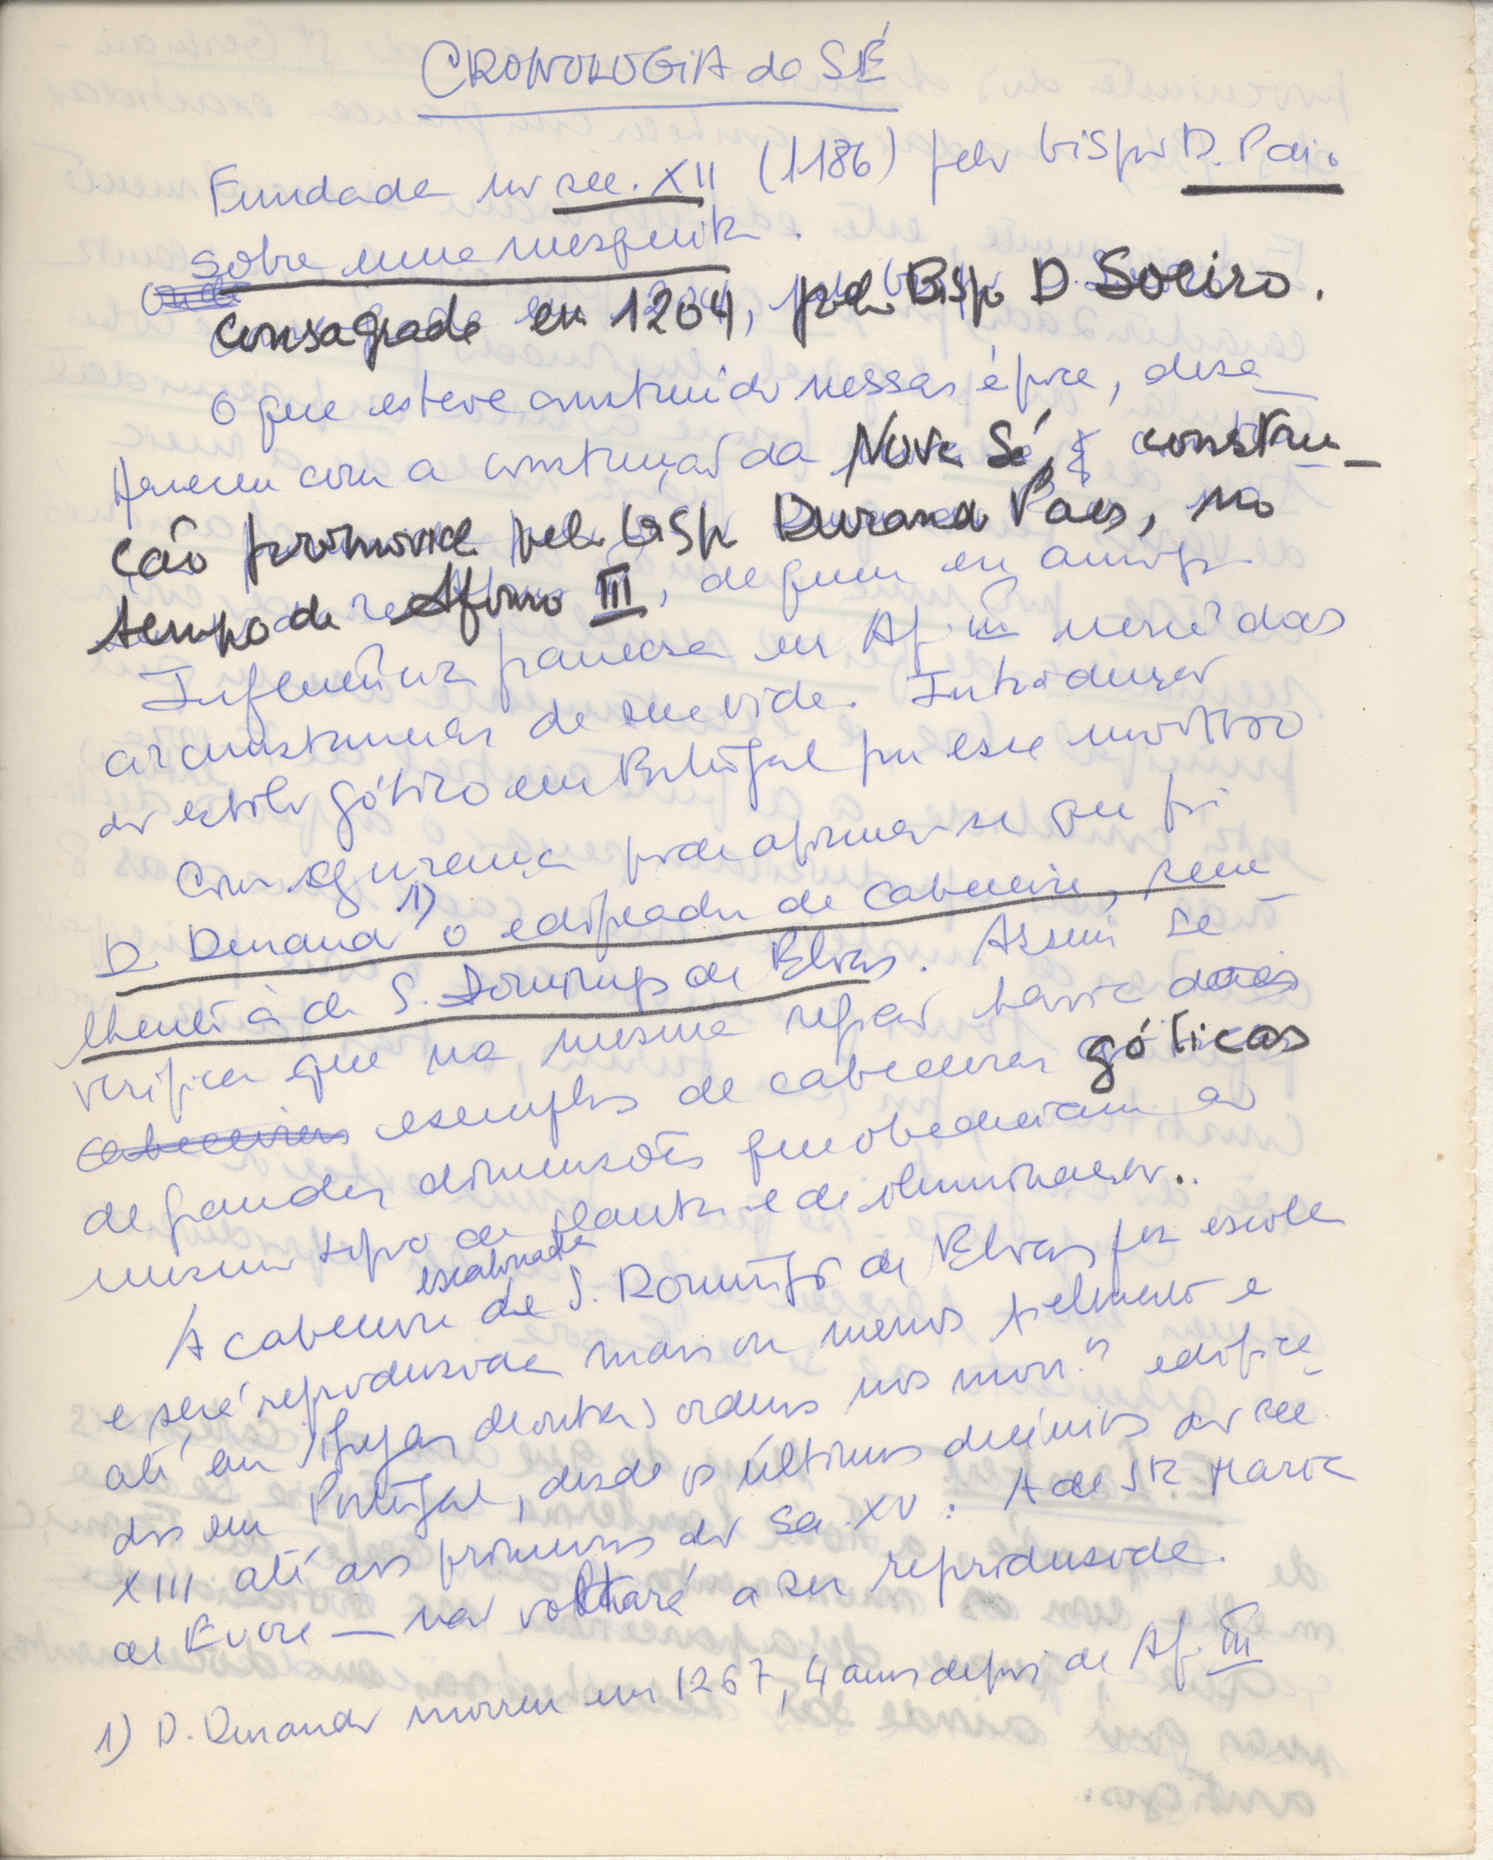 CRONOLOGIA da SÉ
Fundada no séc. XII (1186) pelo bispo D. Paio
sobre uma mesquita.
Consagrada em 1204, pelo Bispo D Soeiro.
O que esteve construido nessas época, desa_
pareceu com a construção da Nova Sé, constru_
ção promovida pelo bispo Durand Pais, no
tempo de Afonso III, de quem era amigo.
Influência francesa em Af. III mercê das
circunstancias de sua vida. Introdução
do estilo gótico em Portugal por esse motivo
Com segurança pode afirmar-se que foi
D. Durand 1) o edificador da cabeceira, seme_
lhante à de S. Domingos de Elvas. Assim se
verifica que na mesma região havia dois
cabeceiras exemplos de cabeceiras góticas
de grandes dimensões que obedeciam ao
mesmo tipo de planta e de iluminação..
A cabeceira escalonada de S. Domingos de Elvas fez escola
e será reproduzida mais ou menos fielmente e
até em igrejas de outras ordens nos mon.os edifica_
dos em Portugal, desde os últimos decénios do séc.
XIII até aos primeiros do séc. XV. A de Sta Maria
de Evora — não voltará a ser reproduzida.
1) D. Durando morreu em 1267, 4 anos depois de Af. III